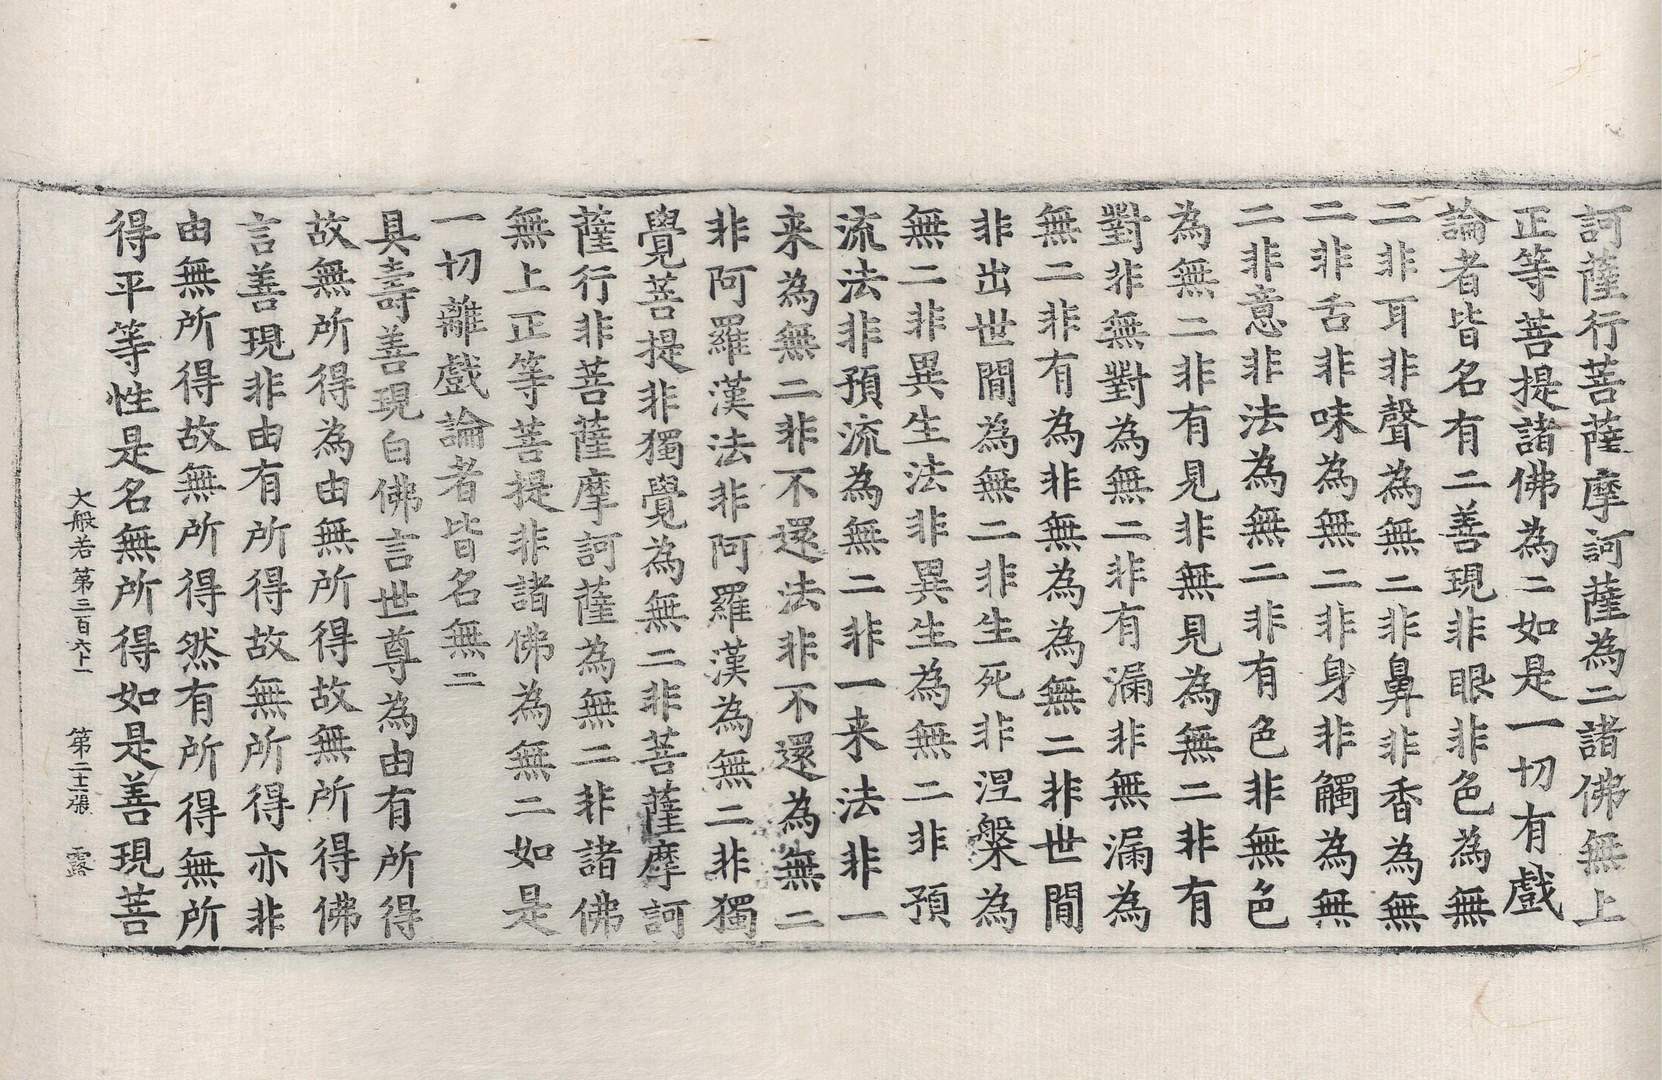 訶薩行菩薩摩訶薩為二諸佛無上
正等菩提諸佛為二如是一切有戲
論者皆名有二善現非眼非色為無
二非耳非聲為無二非鼻非香為無
二非舌非味為無二非身非觸為無
二非意非法為無二非有色非無色
為無二非有見非無見為無二非有
對非無對為無二非有漏非無漏為
無二非有為非無為為無二非世間
非出世間為無二非生死非涅槃為
無二非異生法非異生為無二非預
流法非預流為無二非一来法非一
来為無二非不還法非不還為無二
非阿羅漢法非阿羅漢為無二非獨
覺菩提非獨覺為無二非菩薩摩訶
薩行非菩薩摩訶薩為無二非諸佛
無上正等菩提非諸佛為無二如是
一切離戲論者皆名無二
具壽善現白佛言世尊為由有所得
故無所得為由無所得故無所得佛
言善現非由有所得故無所得亦非
由無所得故無所得然有所得無所
得平等性是名無所得如是善現菩
大般若第三百六十一 第二十二張 露